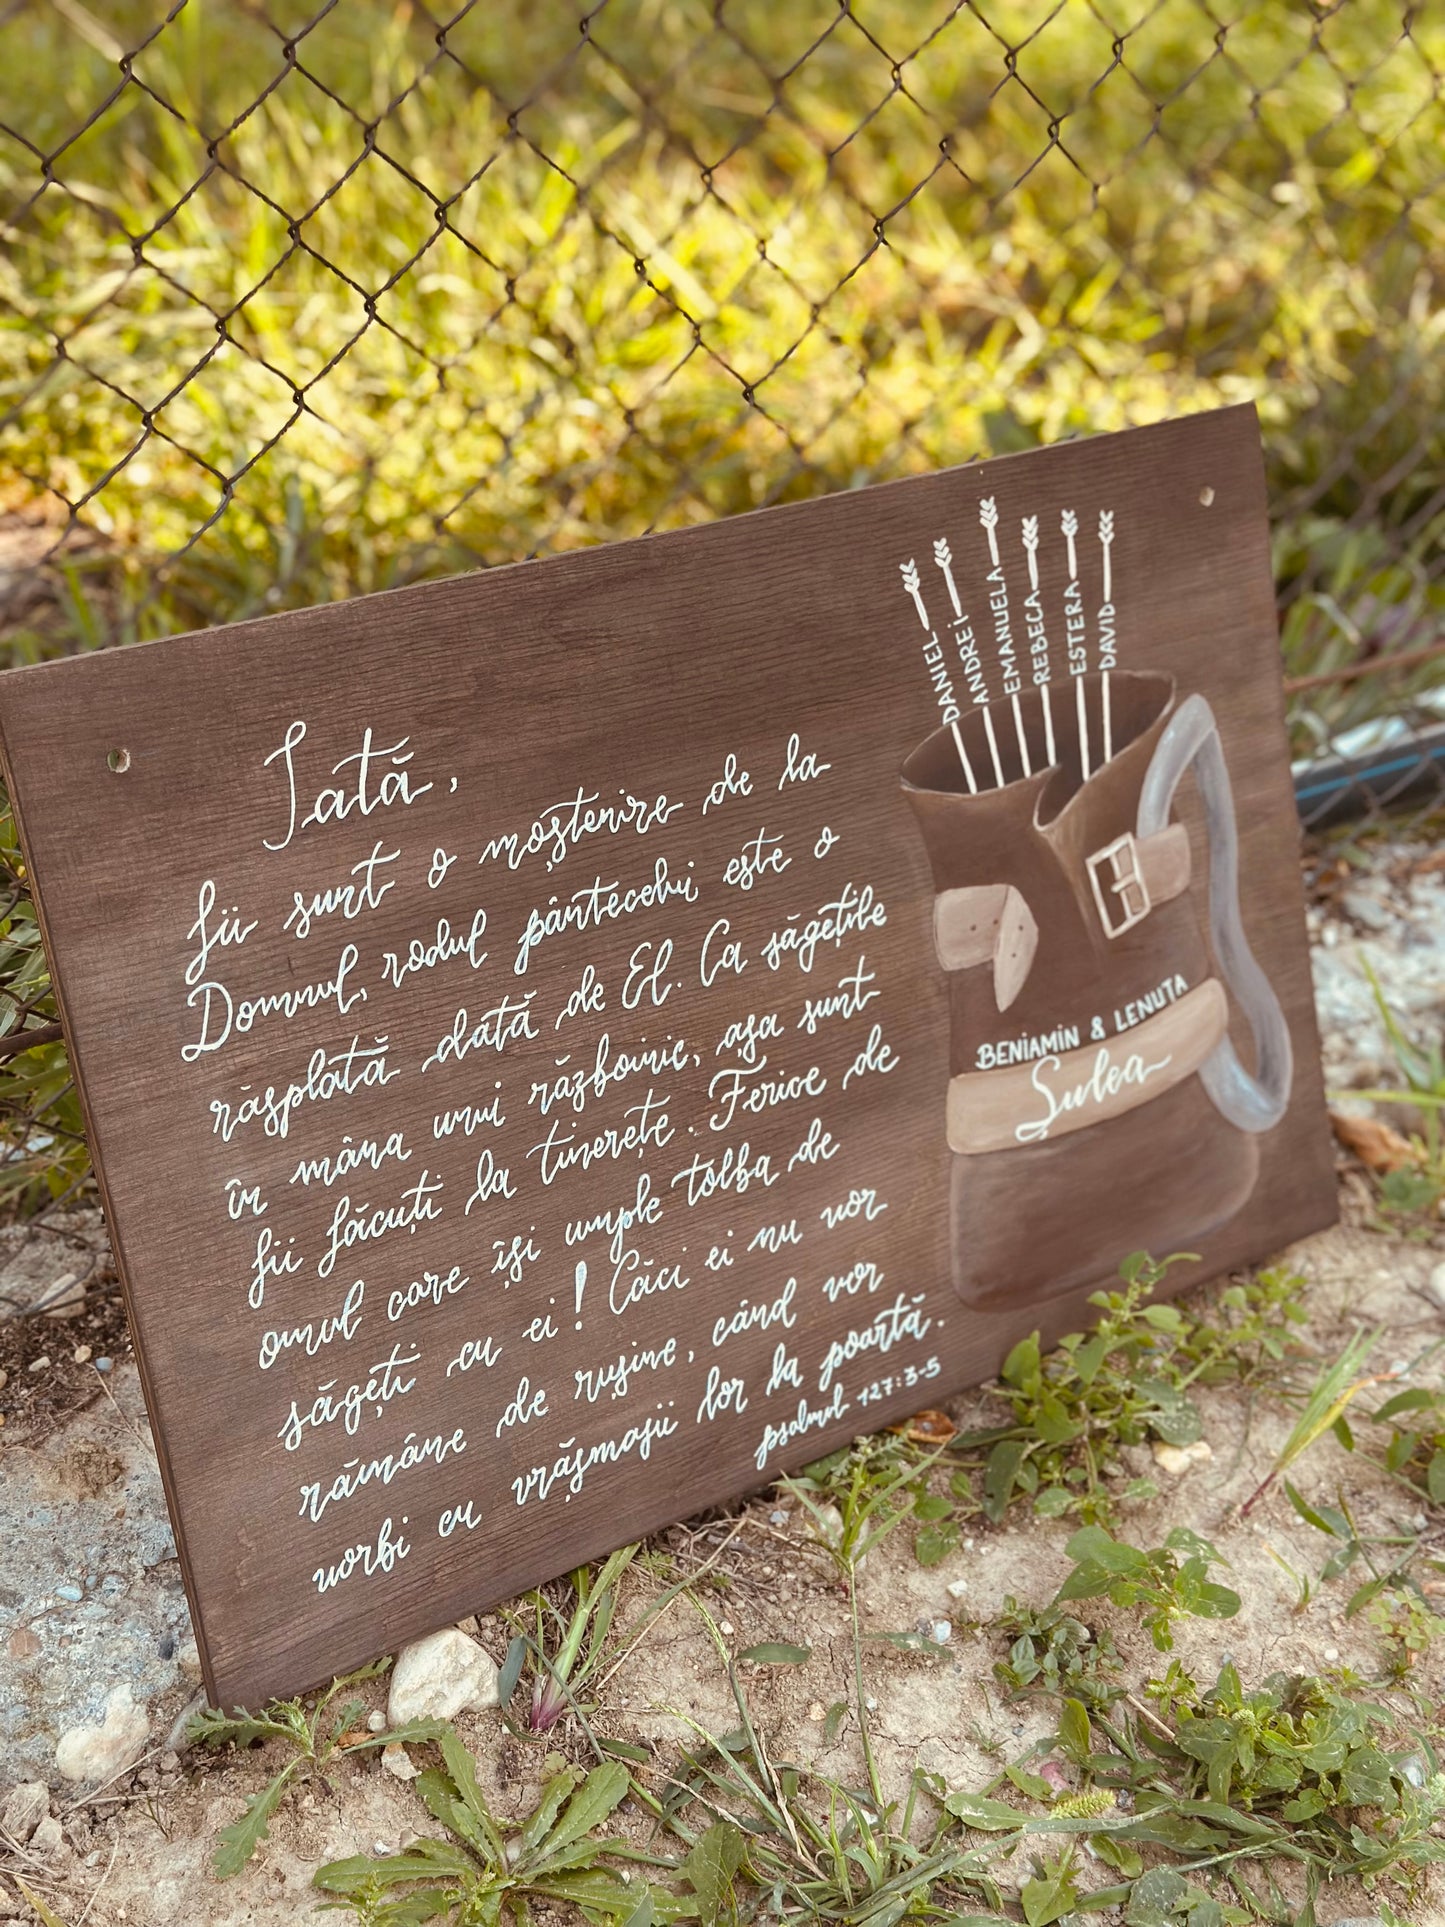 Iată,
fii sunt o moștenire de la
Domnul, rodul pântecelui este o
răsplată dată de El. Ca săgețile
în mâna unui războinic, așa sunt
fii făcuți la tinerețe. Ferice de
omul care își umple tolba de
săgeți cu ei! Căci ei nu vor
rămâne de rușine, când vor
vorbi cu vrășmașii lor la poartă.
psalmul 127:3-5
DANIEL
ANDREI
EMANUELA
REBECA
ESTERA
DAVID
BENIAMIN & LENUȚA
Șulea